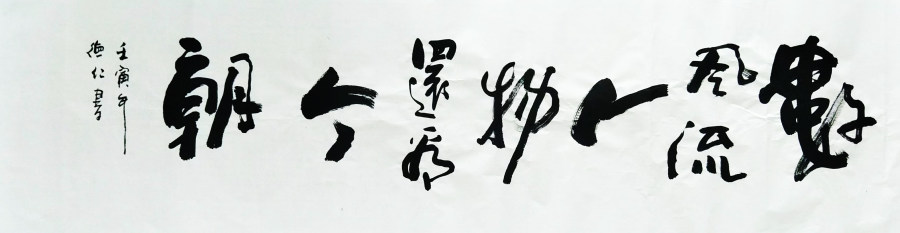 數風流人物還看今朝
壬寅年
德仁書